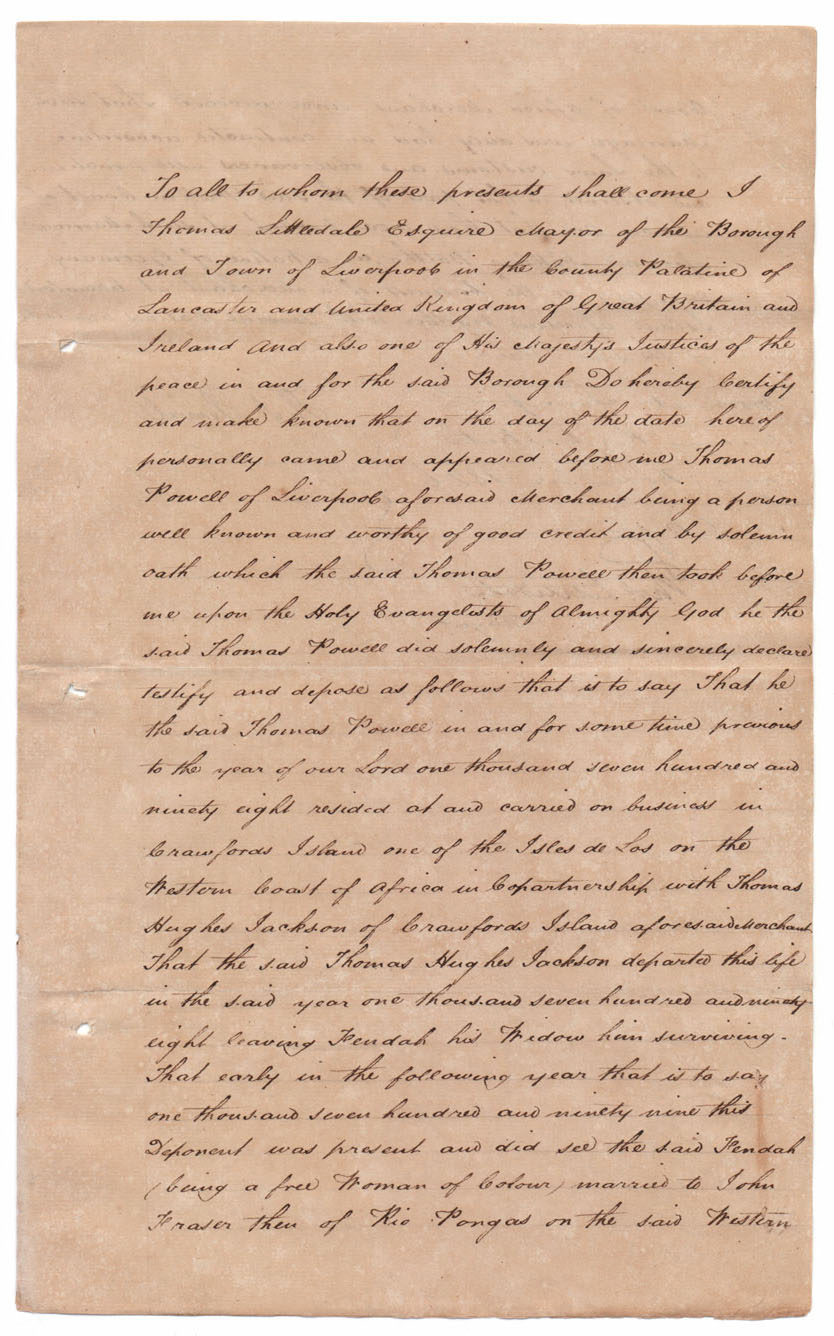 To all to whom these presents shall come I
Thomas Littledale Esquire Mayor of the Borough
and Town of Liverpool in the County Palatine of
Lancaster and United Kingdom of Great Britain and
Ireland And also one of His Majesty's Justices of the
peace in and for the said Borough Do hereby Certify
and make known that on the day of the date here of
personally came and appeared before me Thomas
Powell of Liverpool aforesaid Merchant being a person
well known and worthy of good credit and by solemn
Oath which the said Thomas Powell then took before
me upon the Holy Evangelists of Almighty God he the
said Thomas Powell did solemnly and sincerely declare
testify and depose as follows that is to say That he
the said Thomas Powell in and for some time previous
to the year of our Lord one thousand seven hundred and
ninety eight resided at and carried on business in
Crawfords Island one of the Isles de Los on the
Western Coast of Africa in Copartnership with Thomas
Hughes Jackson of Crawfords Island aforesaid Merchant.
That the said Thomas Hughes Jackson departed this life
in the said year one thousand seven hundred and ninety
eight leaving Fendah his Widow him surviving.
That early in the following year that is to say
one thousand seven hundred and ninety nine this
Deponent was present and did see the said Fendah
(being a free Woman of Colour) married to John
Fraser then of Rio Pongas on the said Western